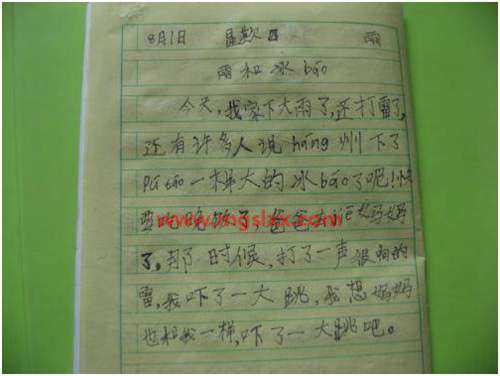 8月1日 星期 雨
雨和冰báo
今天,我家下大雨了,还打雷了,
还有许多人说háng州下了
Pú táo一样大的冰báo了呢!快
要吃晚饭了,爸爸去 妈妈
www.mgslxx.com
了,那时候,打了一声很响的
雷,我吓了一大跳,我想妈妈
也和我一样,吓了一大跳吧。